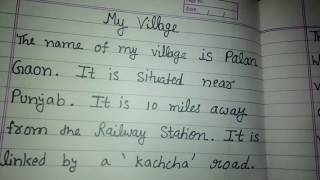 My Village
The name of my village is Palan
Gaon. It is situated near
Punjab. It is 10 miles away
from the Railway Station. It is
linked by a 'kachcha' road.